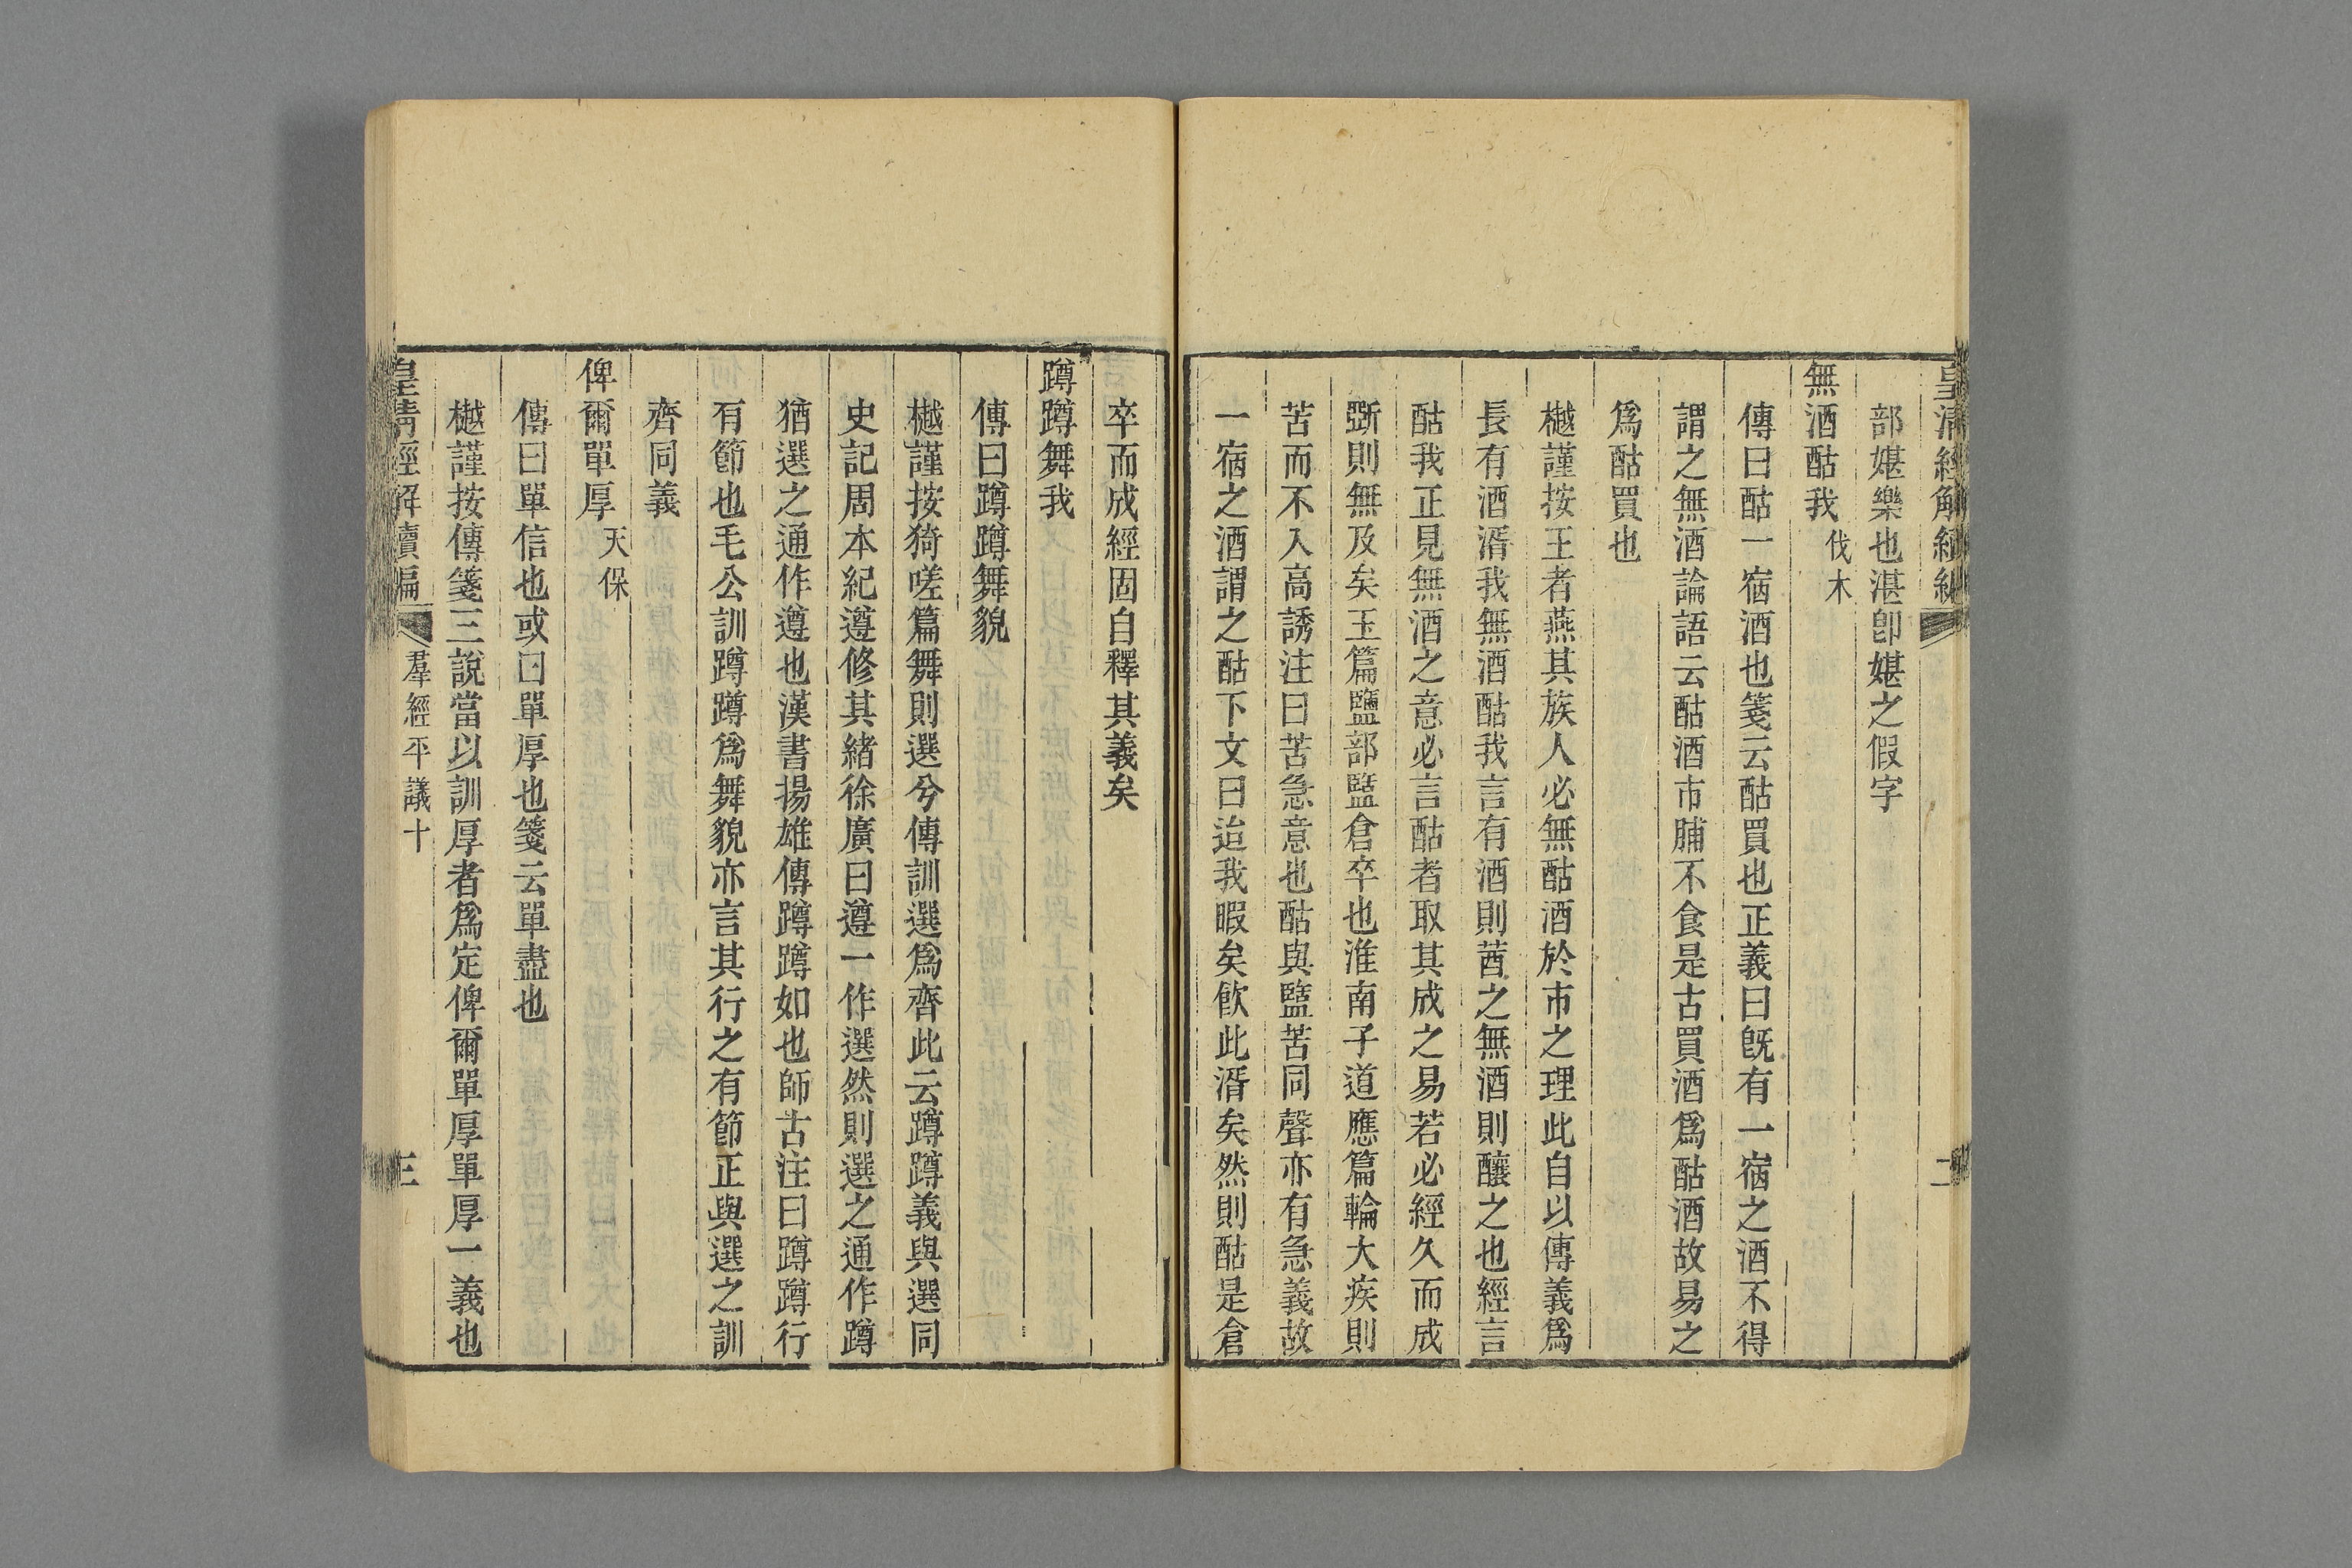 皇清經解續編
二
部媅樂也湛卽媅之假字
無酒酤我伐木
傳曰酤一宿酒也箋云酤買也正義曰旣有一宿之酒不得
謂之無酒論語云酤酒市脯不食是古買酒爲酤酒故易之
爲酤買也
樾謹按王者燕其族人必無酤酒於市之理此自以傳義爲
長有酒湑我無酒酤我言有酒則莤之無酒則釀之也經言
酤我正見無酒之意必言酤者取其成之易若必經久而成
斲則無及矣玉篇鹽部盬倉卒也淮南子道應篇輪大疾則
苦而不入高誘注曰苦急意也酤與盬苦同聲亦有急義故
一宿之酒謂之酤下文曰迨我暇矣飮此湑矣然則酤是倉
卒而成經固自釋其義矣
蹲蹲舞我
傳曰蹲蹲舞貌
樾謹按猗嗟篇舞則選兮傳訓選爲齊此云蹲蹲義與選同
史記周本紀遵修其緒徐廣曰遵一作選然則選之通作蹲
猶選之通作遵也漢書揚雄傳蹲蹲如也師古注曰蹲蹲行
有節也毛公訓蹲蹲爲舞貌亦言其行之有節正與選之訓
齊同義
俾爾單厚天保
傳曰單信也或曰單厚也箋云單盡也
樾謹按傳箋三說當以訓厚者爲定俾爾單厚單厚一義也
皇淸經解續編
羣經平議十
三